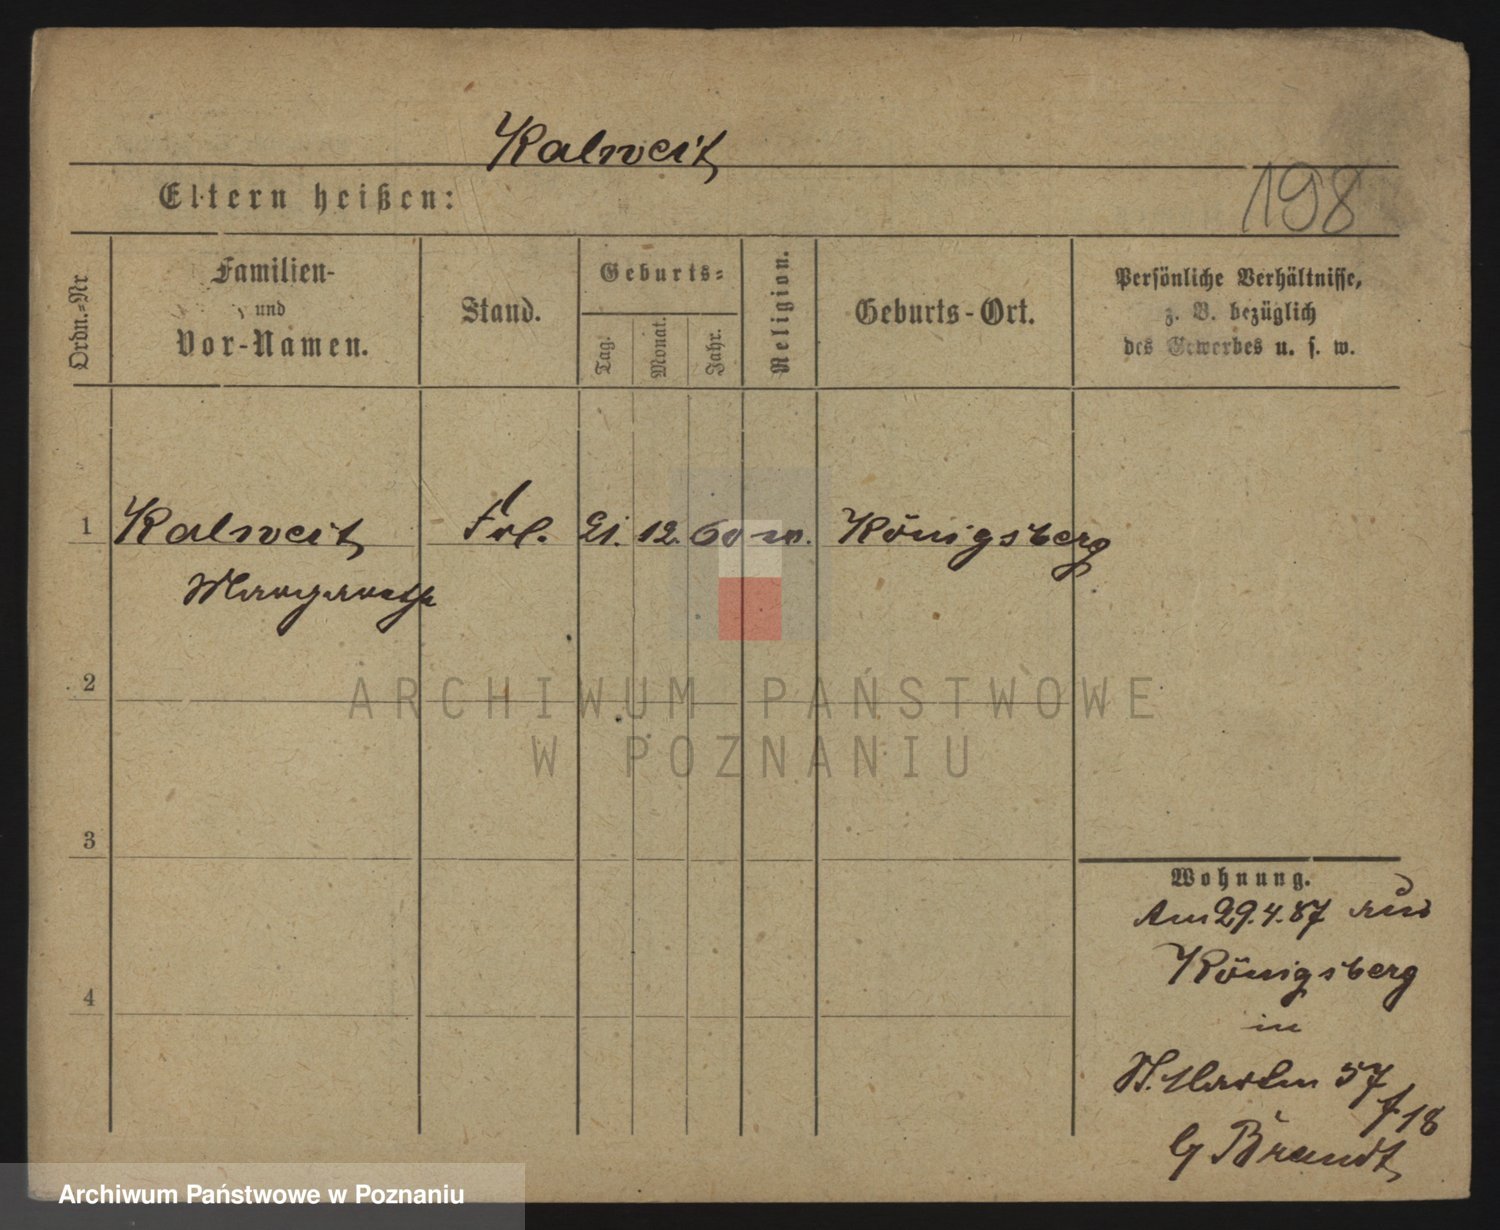 Kalweit
Eltern heißen:
198
Ordn.-Nr
Familien-
und
Vor-Namen.
Stand.
Geburts-
Tag.
Monat.
Jahr.
Religion.
Geburts-Ort.
Persönliche Verhältnisse,
z. B. bezüglich
des Gewerbes u. s. w.
1 Kalweit Frl. 21. 12. 60 Königsberg
Margarethe
2
ARCHIWUM PAŃSTWOWE
W POZNANIU
3
4
Wohnung.
Am 29.4.87 aus
Königsberg
in
St. Martin 57
f 18
Brandt
Archiwum Państwowe w Poznaniu